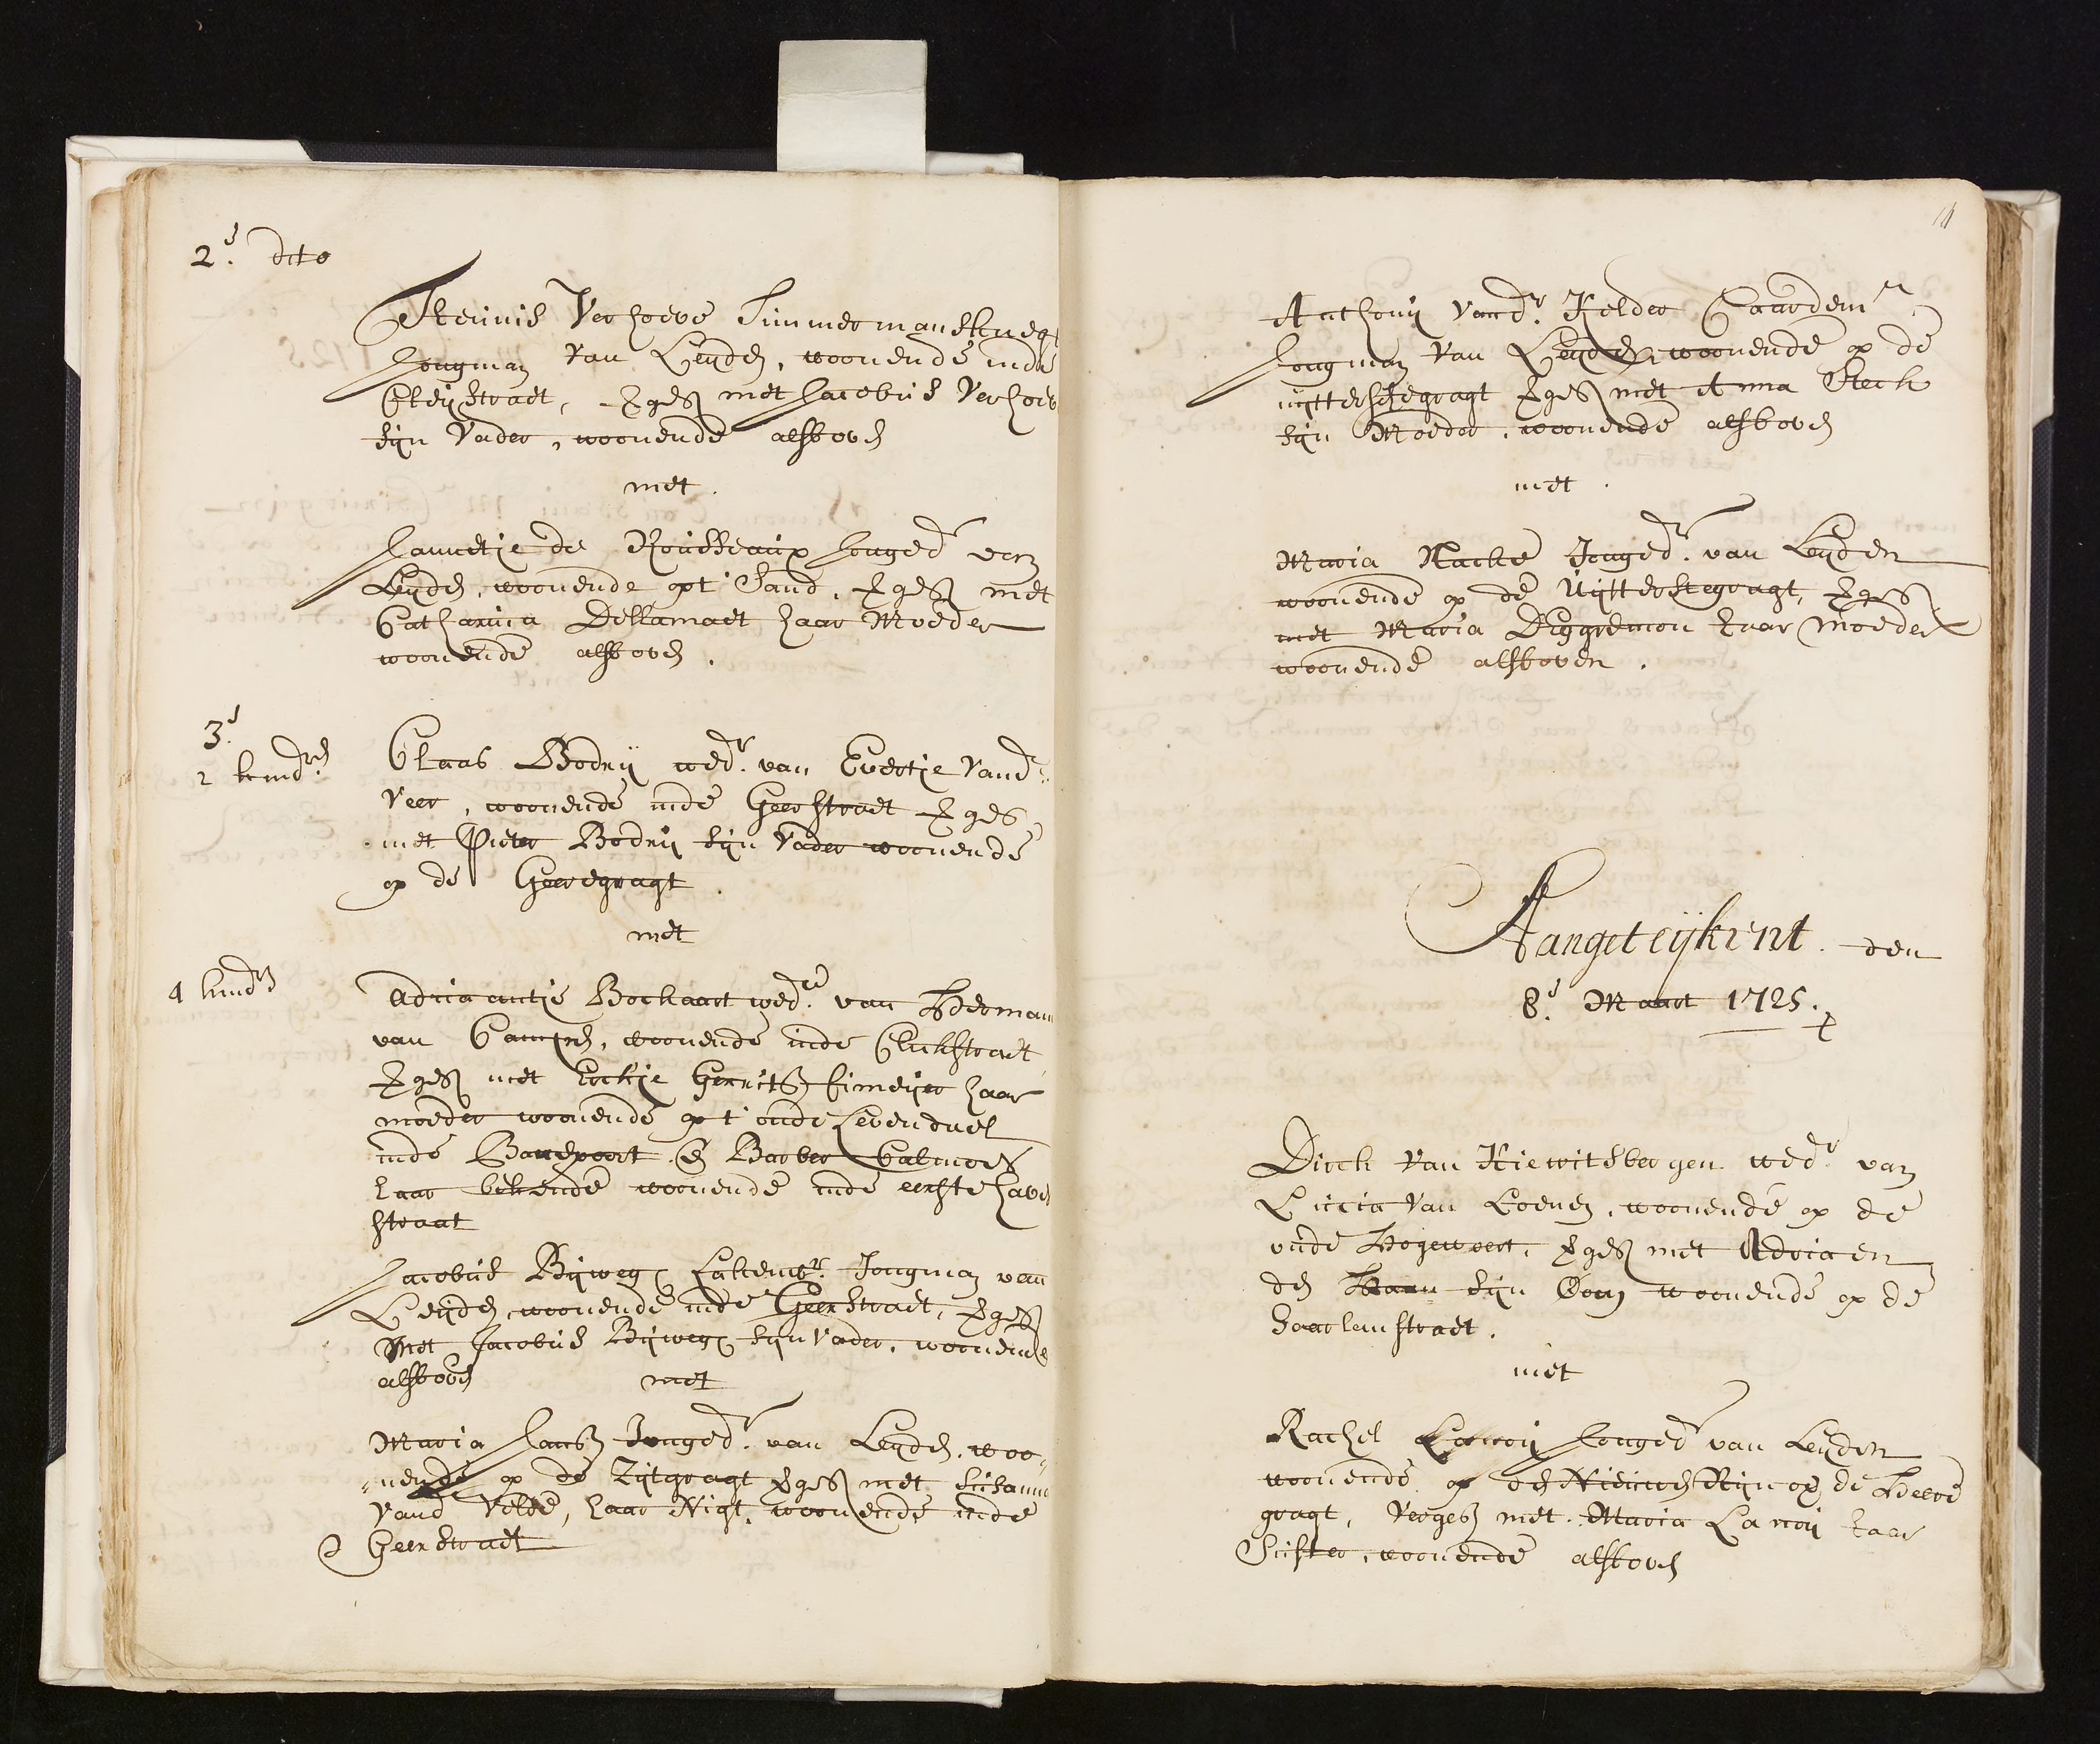 2.e dito
Theunis Verhoeve Timmermansknegt
Jongman van Leyden, woonende inde
Cleystraet, Verges met Jacobus Verhoev
sijn Vader, woonende alsboven
met.
Jannetje de Rousseaux Jonged.r van
Leyden, woonende opt Sand, Verges met
Catharina Dellamaet haar Moeder
woonende alsboven.
3.e
2 kindren
Claas Bodry wed.r van Evertje Vand.r
Veer, woonende inde Geerstraet Verges
met Pieter Bodry sijn Vader woonende
op de Geeregragt.
met
4 kindrn
Adriaantje Bockaart wed.e van Herman
van Campen, woonende inde Cluckstraet
Verges met Gerrits haar
moeder woonende op t oude Levendael
inde en Barber
haar bekende woonende inde eerste have
straat
Jacobus Byweg Lakenwr. Jongman van
Leyden, woonende inde Geerstraet, Verges
Met Jacobus Byweg sijn Vader, woonende
alsboven met
Maria Jansz Jonged.r van Leyden, woo-
nende op de Zijtgragt Verges met Susanna
Vand Velde, haar Nigt, woonende inde
Geerstraet
11
Anthony vand.r Kelder
Jongman van Leyden, woonende op de
uytterstegragt Verges met Anna Steck
sijn Moeder, woonende alsboven
met.
Maria Nacke Jonged.r van Leyden
woonende op de Uytterstegragt, Verges
met Maria Deggremon haar Moeder
woonende alsboven.
Aangeteijkent. den
8.e Maart 1725.
Dirck van Kiewitsbergen wed.r van
Lucia van Loenen, woonende op de
oude Hogewoert, Verges met Adriaen
den Haan sijn Oom woonende op de
Haarlemstraet.
met
Rachel Lanoy Jonged.r van Leyden
woonende op den Nieuwen Rijn op de Heere
gragt, Verges met Maria Lanoy haar
Suster, woonende alsboven